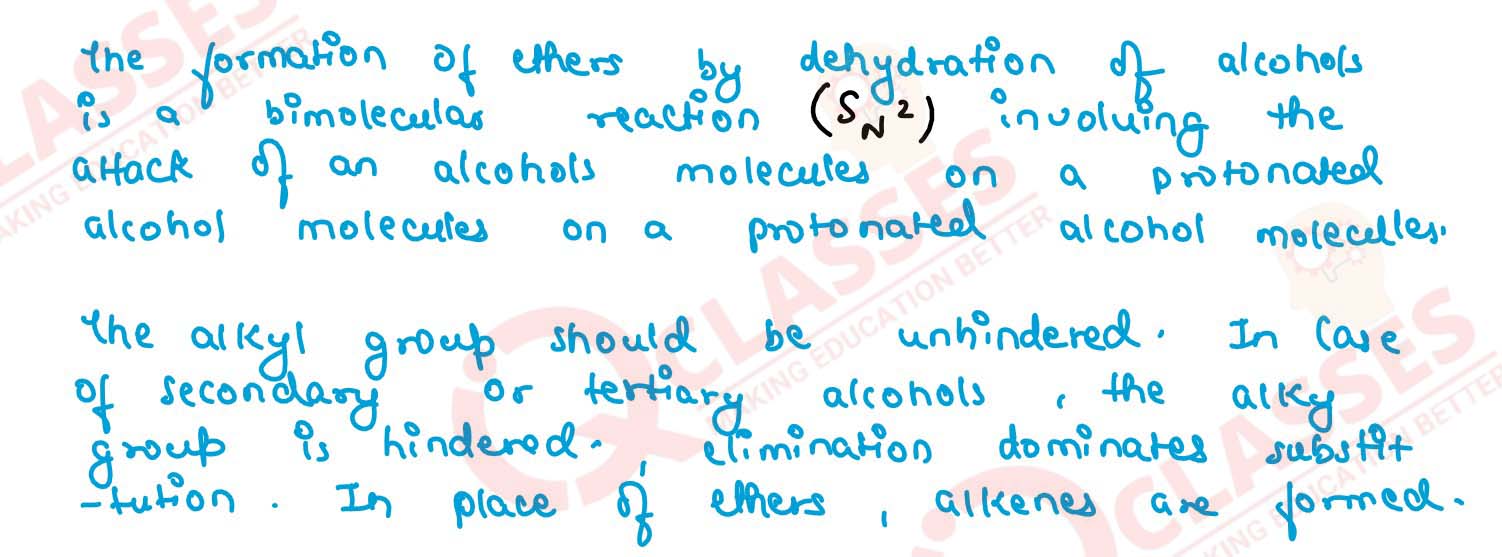 The formation of ethers by dehydration of alcohols
is a bimolecular reaction (SN2) involving the
attack of an alcohols molecules on a protonated
alcohol molecules on a protonated alcohol molecules.
The alkyl group should be unhindered. In Case
of secondary or tertiary alcohols, the alky
group is hindered., elimination dominates substit
-tution. In place of ethers, alkenes are formed.
CLASSES
MAKING EDUCATION BETTER